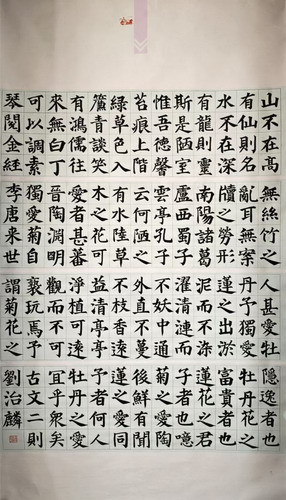 山不在高
有仙則名
水不在深
有龍則靈
斯是陋室
惟吾德馨
苔痕上階
綠草色入
簾青談笑
有鴻儒往
來無白丁
可以調素
琴閱金經
無絲竹之
亂耳無案
牘之勞形
南陽諸葛
廬西蜀子
雲亭孔子
云何陋之
有水陸草
木之花可
愛者甚蕃
晉陶淵明
獨愛菊自
李唐来世
人甚愛牡
丹予獨愛
蓮之出淤
泥而不染
濯清漣而
不妖中通
外直不蔓
不枝香遠
益清亭亭
淨植可遠
觀而不可
褻玩焉予
謂菊花之
隱逸者也
牡丹花之
富貴者也
蓮花之君
子者也噫
菊之愛陶
後鮮有聞
蓮之愛同
予者何人
牡丹之愛
宜乎衆矣
古文二則
劉治麟